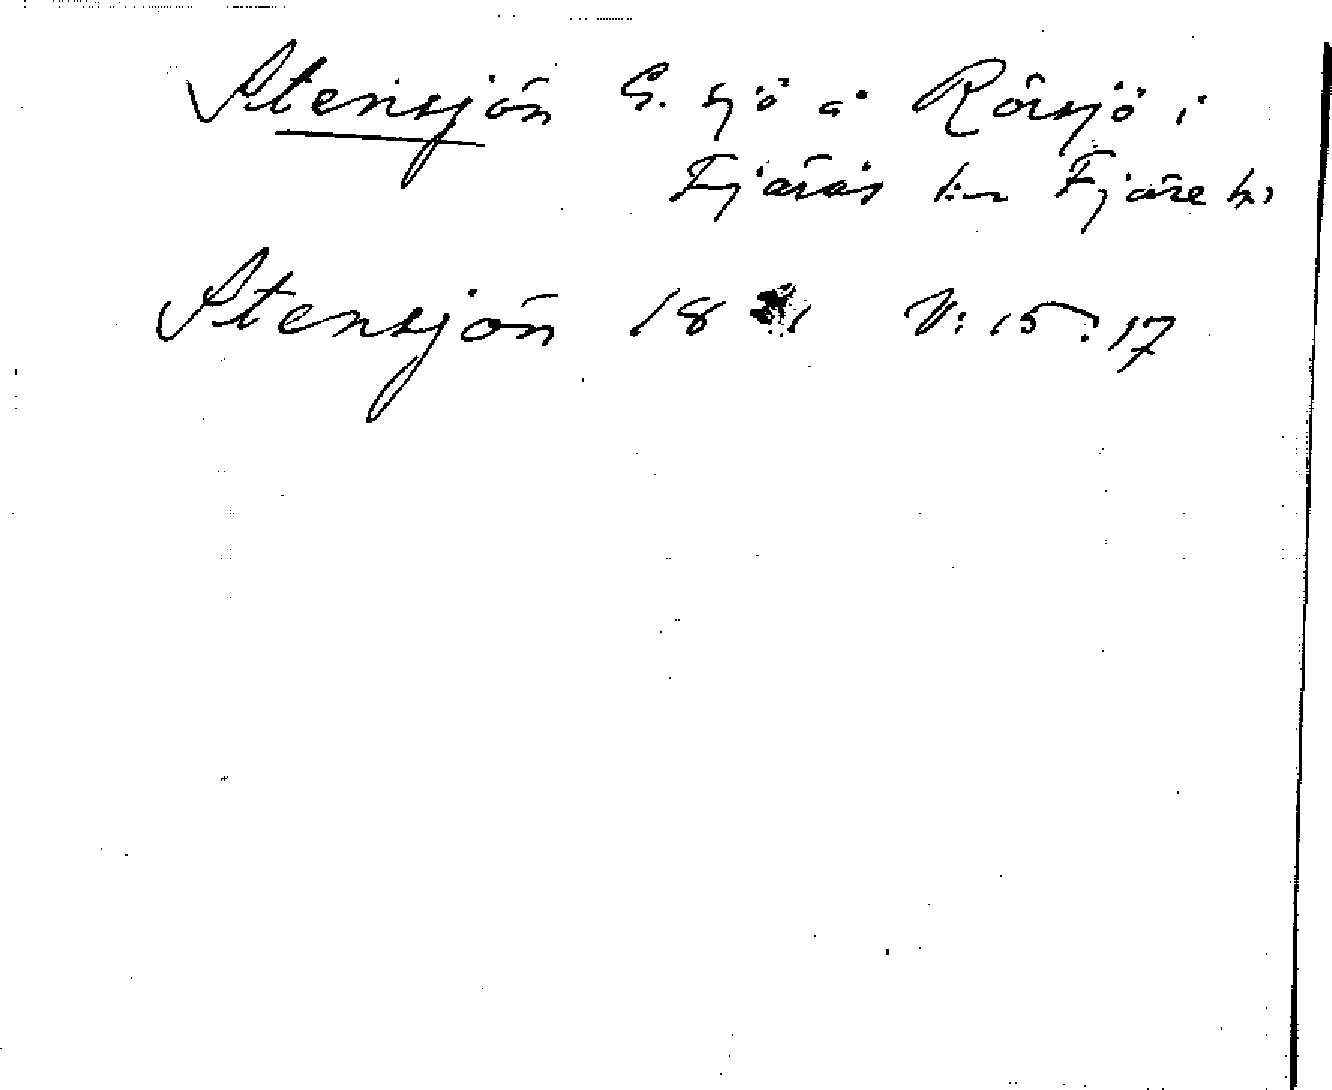 Stensjön G. sjö å Rörsjö i
Fjärås sn Fjäre hd
Stensjön 18 1 V: 15: 17